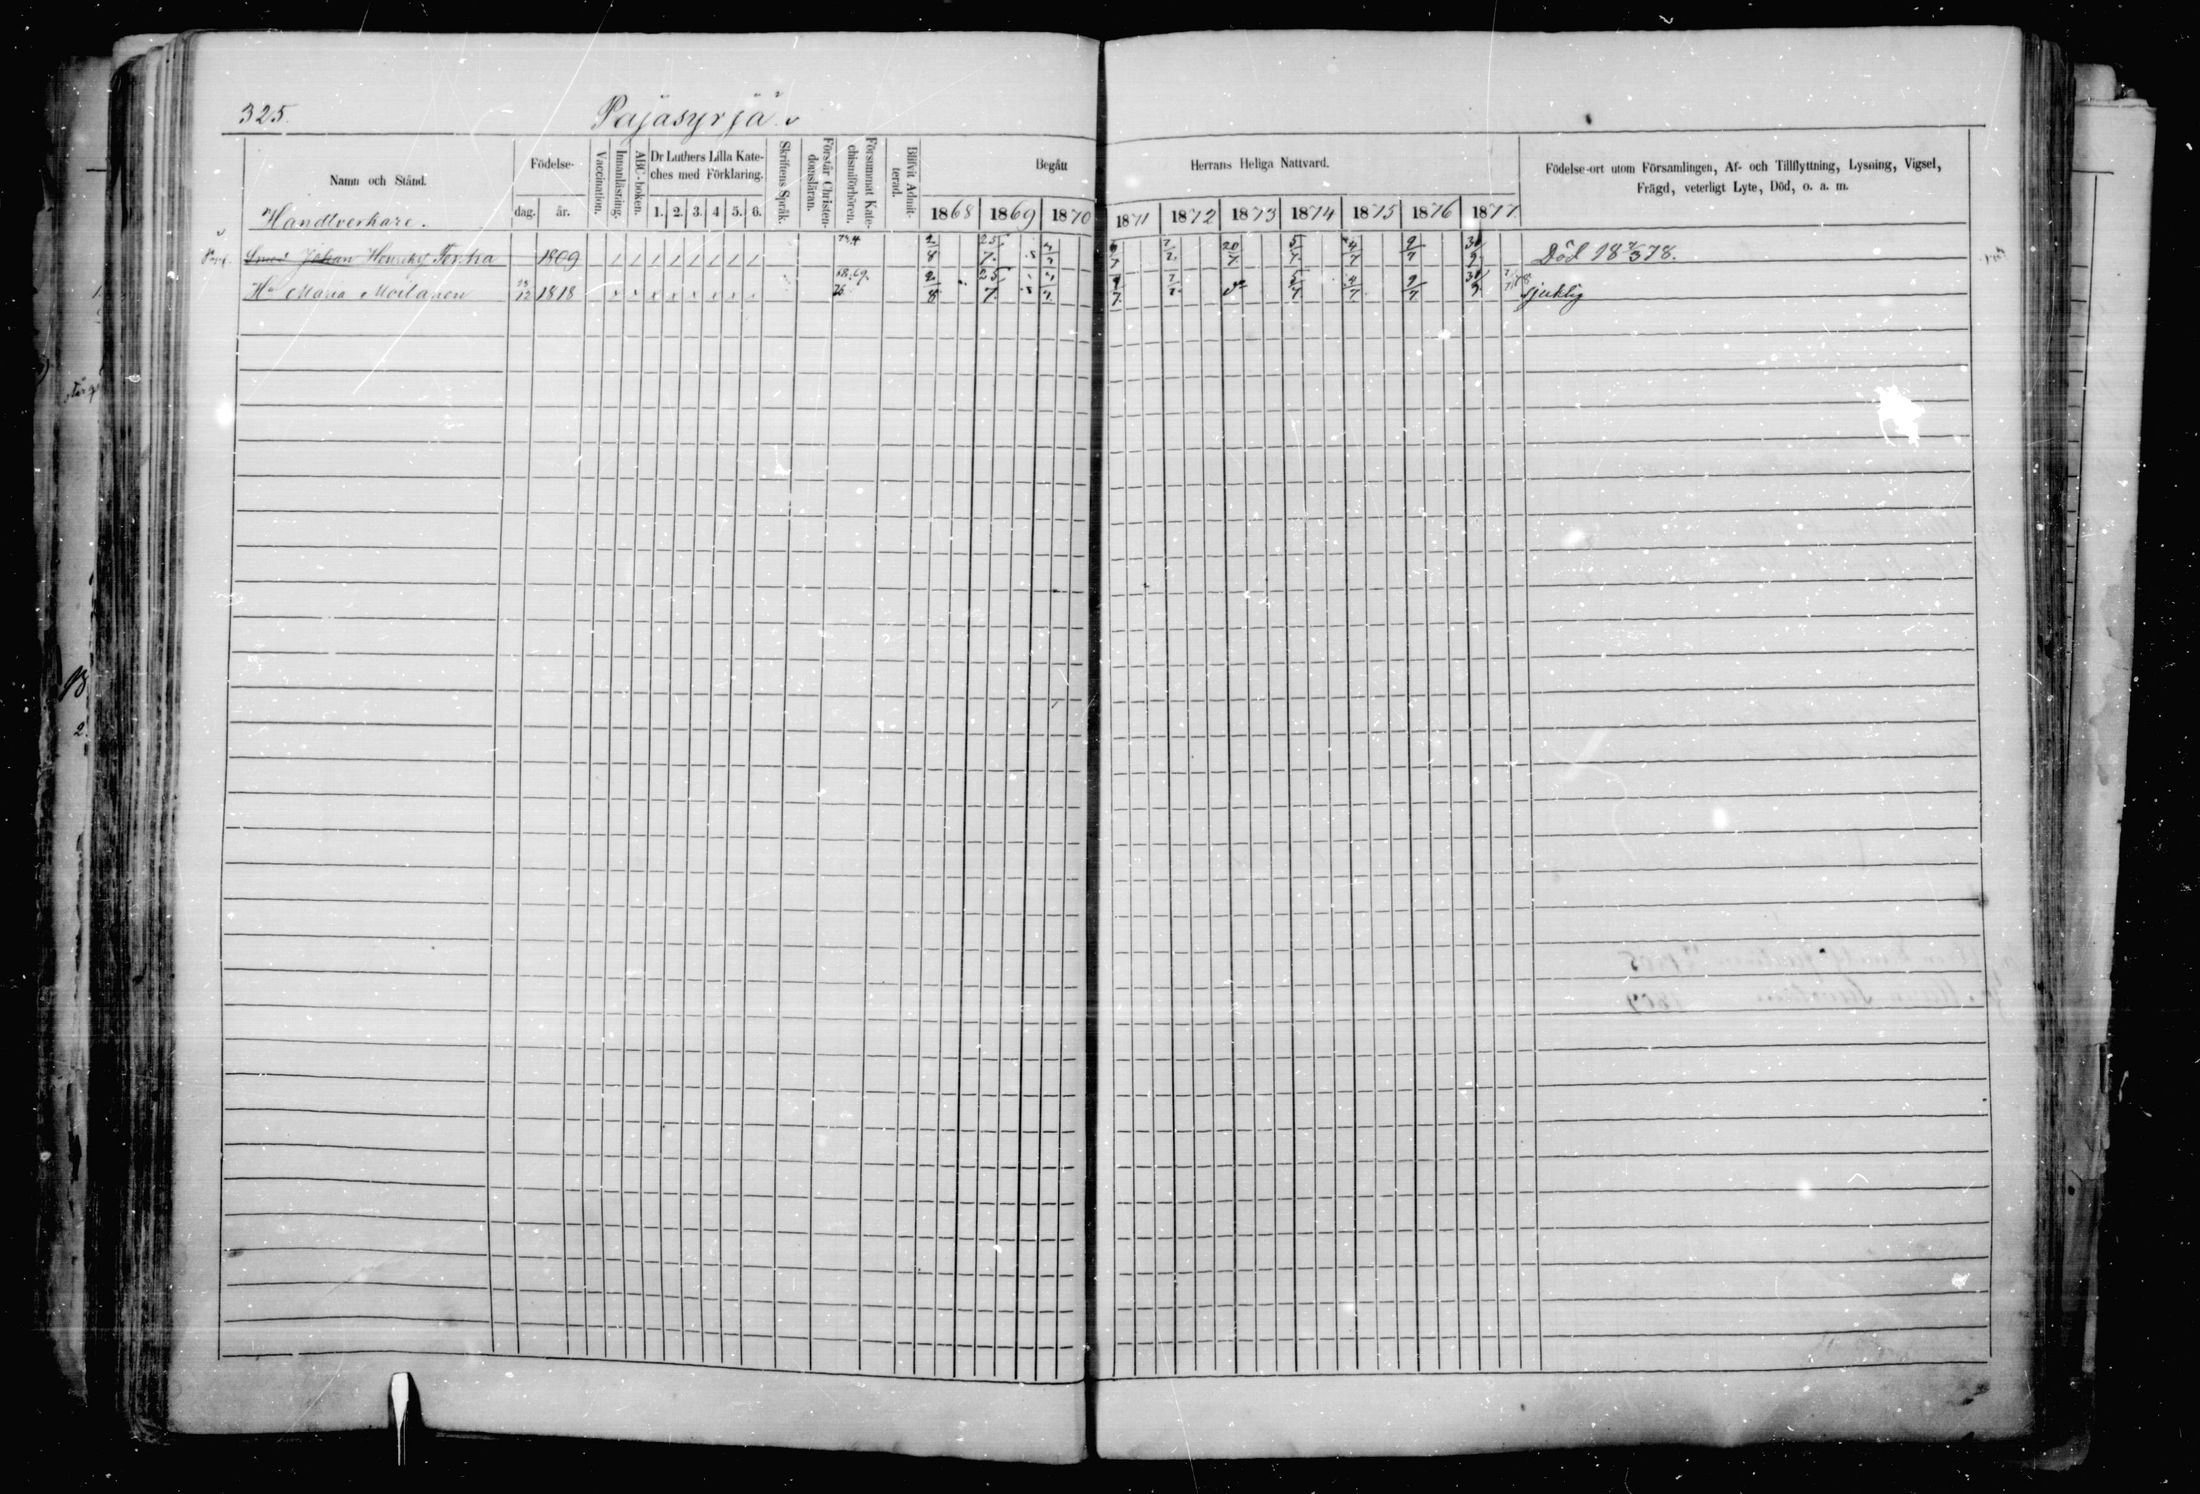 325.
Pajasyrjä.
Namn och Stånd.
Födelse-
dag.
år.
Vaccination.
Innanläsning.
ABC-boken.
Dr Luthers Lilla Kate-
ches med Förklaring.
1. 2. 3. 4 5. 6.
Skriftens Språk.
Förstår Christen-
domsläran.
Försummat Kate-
chismiförhören.
Blifvit Admit-
terad.
Begått
Herrans Heliga Nattvard.
1868 1869 1870 1871 1872 1873 1874 1875 1876 1877
Födelse-ort utom Församlingen, Af- och Tillflyttning, Lysning, Vigsel,
Frägd, veterligt Lyte, Död, o. a. m.
Handtverkare.
Smed Johan Henriks 1809 2/8 25/7 20/7 5/7 4/7 9/7 Död 18 78.
Hu Maria Moilanen 1818 68.69. 2/8 25/7 5/7 4/7 9/7 sjuklig